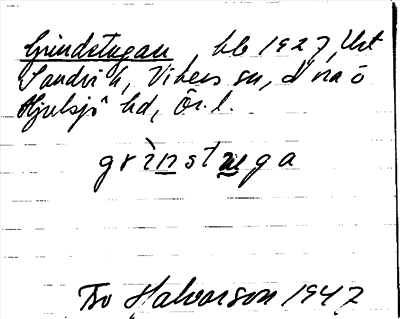 Grindstugan, hb 1927, Ust
Sandvik, Vikers sn, d na ö
Hjulsjö hd, Ör. l.
grìnstuga
Tsv Halvarson 1947